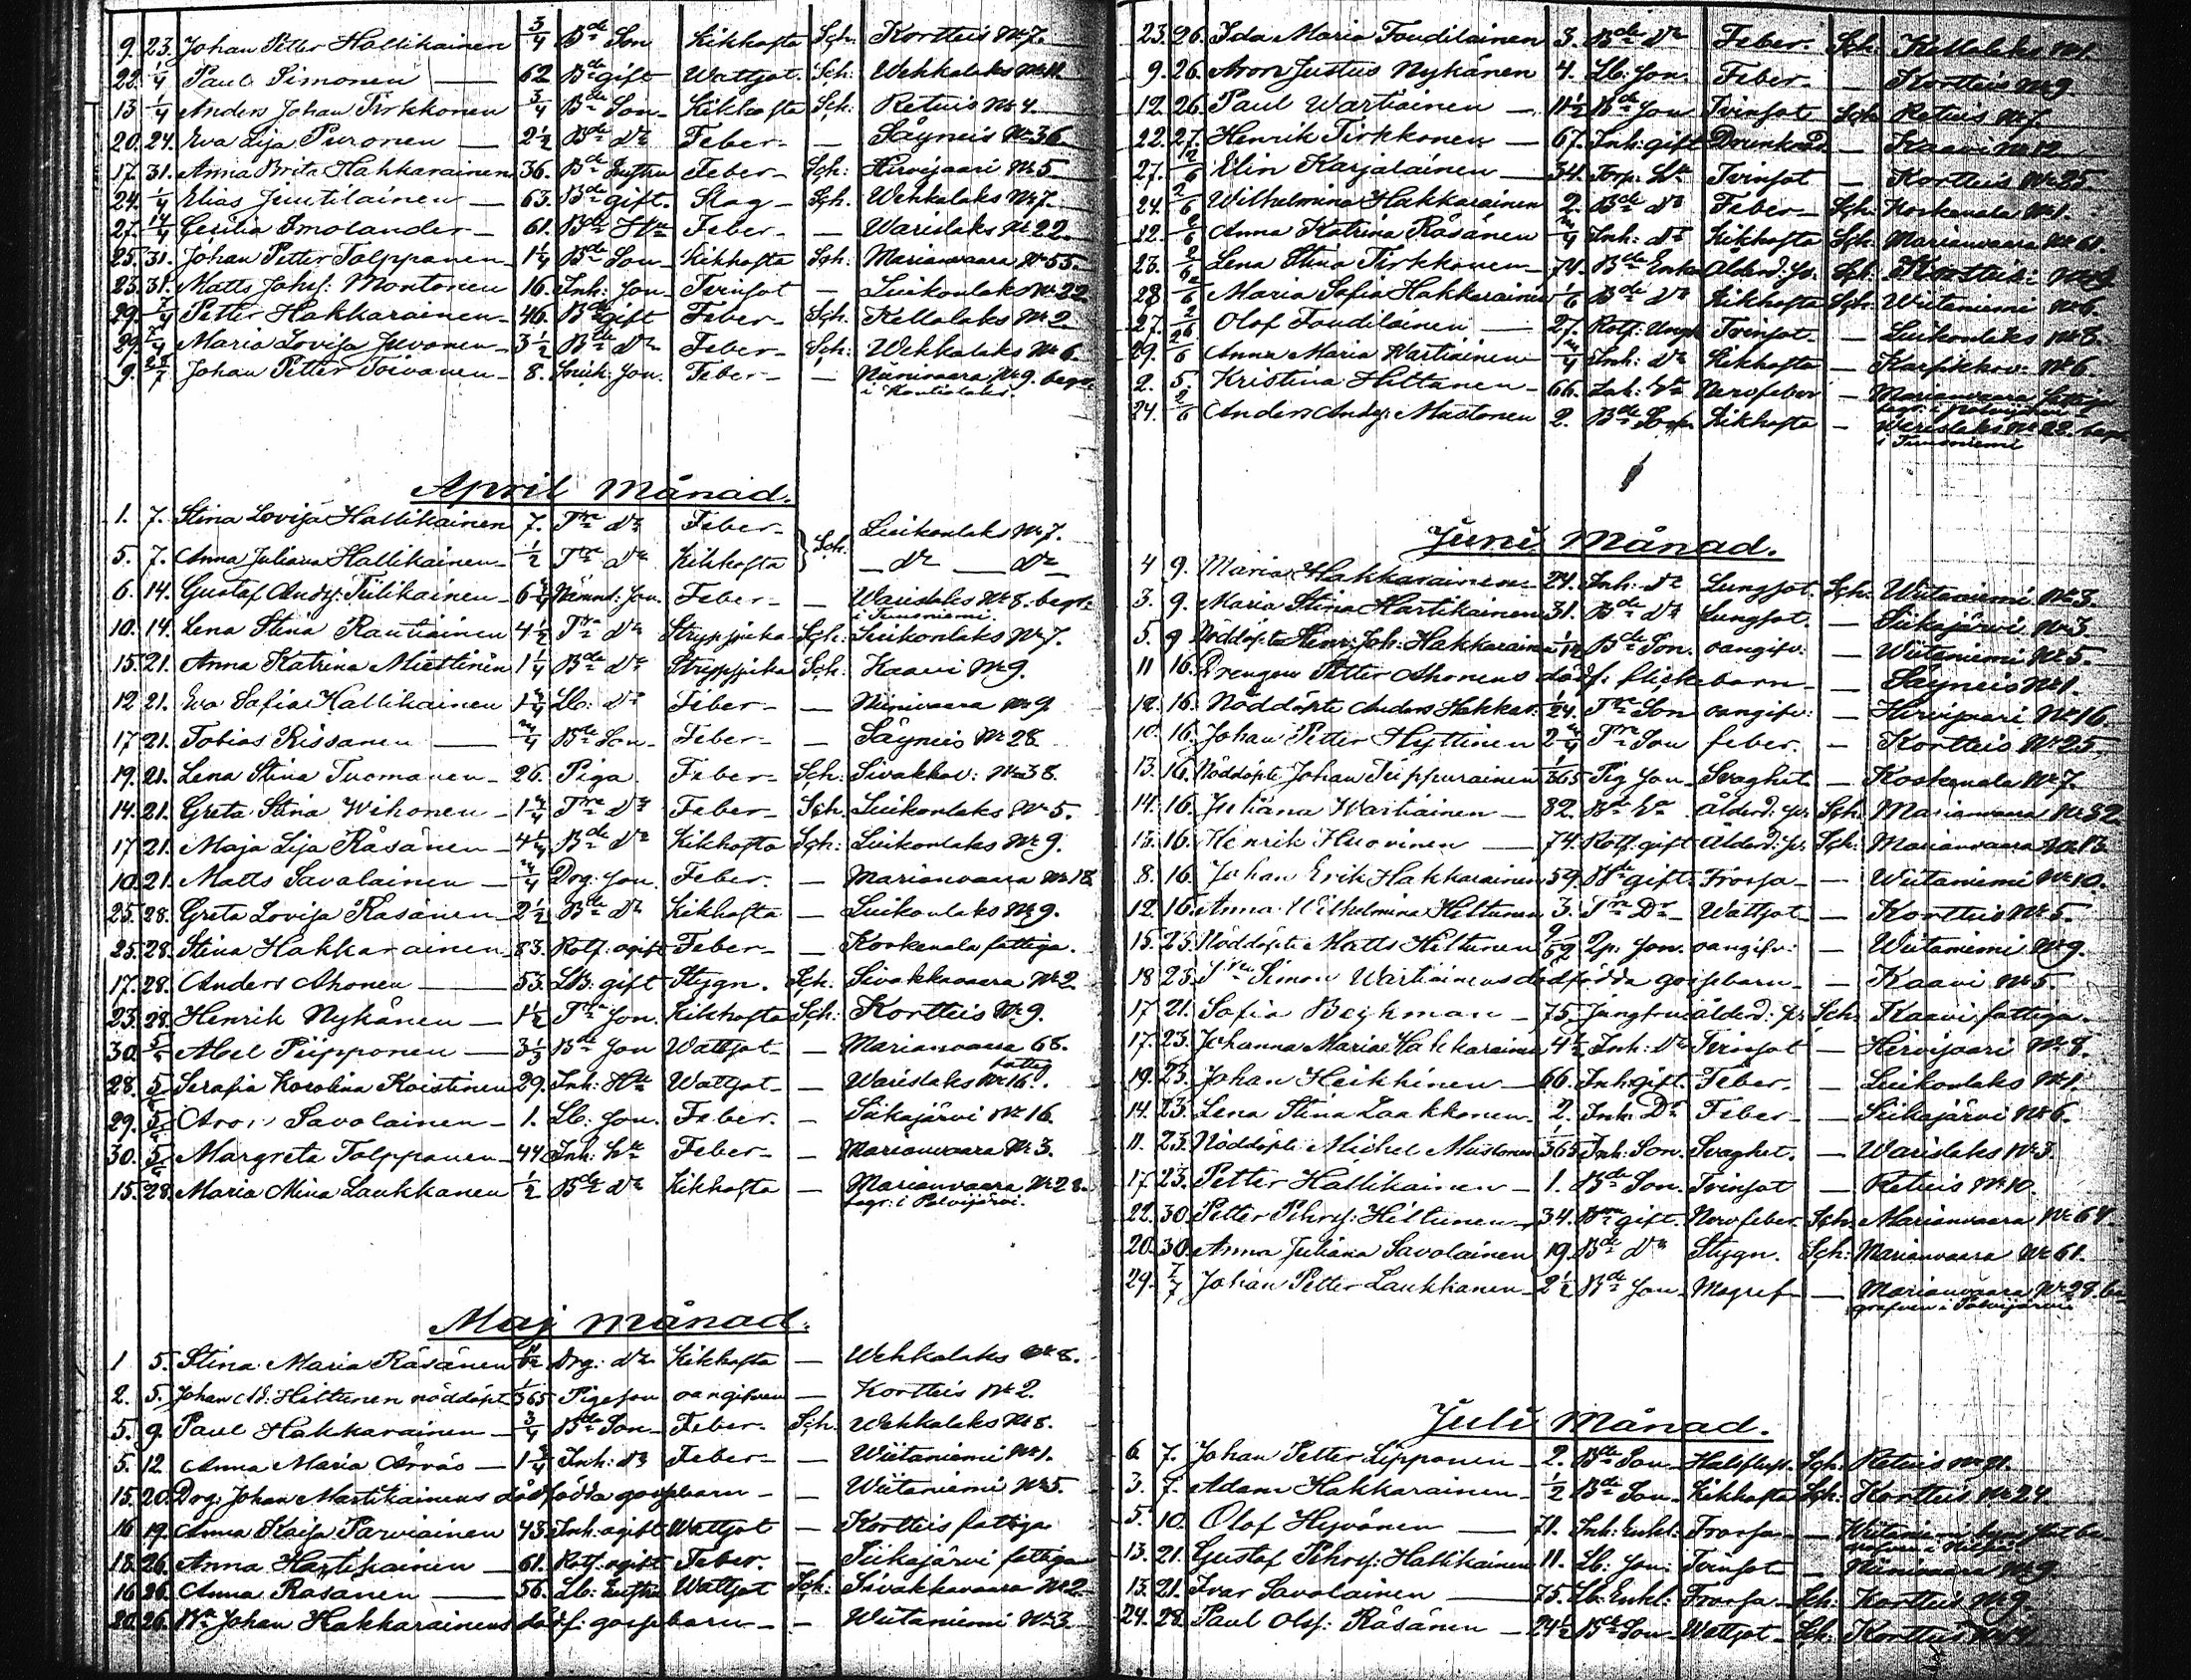 9. 23. Johan Petter Hallikainen 3/4 Bde Son Kikhosta Sch: Kortteis No 7.
22. 1/4 Paul Simonen — 62 Bde gift Wattsot. Sch: Wehkalaks No 11.
13 1/4 Anders Johan Pirkkonen 3/4 Bde Son Kikhosta Sch: Retuis No 4.
20. 24. Eva Lisa Puronen — 2 1/2 Bde Dr Feber — Säyneis No 36
17. 31. Anna Brita Hakkarainen 36. Bde hustru Feber Sch: Hirvijaari No 5.
24. 1/4 Elias Juutilainen — 63. Bde gift. Slag — Sch. Wehkalaks No 7.
27. 14/4 Cecilia Smolander — 61. Bde Feber — Warislaks No 22.
25. 31. Johan Petter Tolppanen 1 1/4 Bde Son Kikhosta Sch: Marianvaara No 55.
23. 31. Matts Johs: Montonen 16. Inh: Son Tvinsot — Luikonlaks No 22
29. 7/4 Petter Hakkarainen 46. Bde gift Feber Sch. Kettolaks No 2.
29. 7/4 Maria Lovisa Juvonen 3 1/2 Bde Dr Feber Sch: Wehkalaks No 6.
9. Johan Petter Toivanen 8. Son. Feber — Niinivaara No 9. begr.
i Kontiolaks.
April Månad.
1. 7. Stina Lovisa Hallikainen 7. Trn Dr Feber } Sch. Luikonlaks No 7.
5. 7. Anna Juliana Hallikainen 1/2 Trn Dr Kikhosta — dr — dr
6. 14. Gustaf Andrs: Tiilikainen 6 3/4 Nämnd: Son. Feber — Warislaks No 8. begr:
i Tuusniemi.
10. 14. Lena Stina Rautiainen 4 1/2 Trn Dr Strypsjuka Sch. Luikonlaks No 7.
15. 21. Anna Katrina Miettinen 1 1/4 Bde Dr Strypsjuka Sch: Kaavi No 9.
12 21. Eva Safia Hallikainen 1 3/4 Lb: Dr Feber — Niinivaara No 9
17 21. Tobias Rissanen — 3/4 Bde Son Feber — Säyneis No 28.
19. 21. Lena Stina Tuomanen 26. Piga Feber Sch: Sivakkav: No 38.
14. 21. Greta Stina Wihonen 1 3/4 Trn Dr Feber Sch. Luikonlaks No 5.
17 21. Maja Lisa Räsänen 4 1/4 Bde Dr Kikhosta Sch: Luikonlaks No 9.
10. 21. Matts Savolainen — 3/4 Drg: Son. Feber. — Marianvaara No 18
25. 28. Greta Lovisa Räsänen 2 1/2 Bde Dr Kikhosta — Luikonlaks No 9.
25. 28. Stina Hakkarainen 83. Rotf: ogift Feber — Koskenala fattiga.
17. 28. Anders Ahonen — 53. LB: gift Stygn. Sch. Sivakkavaara No 2.
23. 28. Henrik Nykänen — 1 1/2 Trn Son. Kikhosta Sch: Kortteis No 9.
30. 5/5 Abel Piipponen — 3 1/3 Bde Son Wattsot — Marianvaara 68.
fattig
28. 5/5 Serafia Karolina Koistinen 29. Inh: Wattsot — Warislaks No 16.
29. 5/5 Aron Savolainen 1. Lb: Son. Feber. — Siikajärvi No 16.
30. 5/5 Margreta Tolppanen 44 Inh: Feber — Marianvaara No 3.
15. 28. Maria Mina Laukkanen 1/2 Bde Dr Kikhosta — Marianvaara No 28.
begr: i Polvijärvi.
Maj månad.
1 5. Stina Maria Räsänen Drg: Dr Kikhosta — Wehkalaks No 8.
2. 5. Johan Ad: Hiltunen nöddöpt 1/365 Pigeson oangifven — Kortteis No 2.
5. 9. Paul Hakkarainen 3/4 Bde Son Feber. Sch. Wehkalaks No 8.
5. 12. Anna Maria Arväs — 1 3/4 Inh: Dr Feber — Wiitaniemi No 1.
15. 20. Drg: Johan Martikainens dödfödda gossebarn — Wiitaniemi No 5.
16 19. Anna Kaisa Parviainen 43. Inh: ogift Wattsot — Kortteis fattiga
18. 26. Anna Hartikainen — 61. Rotf: ogift Feber. — Siikajärvi fattiga
16 26. Anna Räsänen — 56. Lb: hustru Wattsot Sch: Sivakkavaara No 2
20. 26. Bn Johan Hakkarainens dödf: gossebarn — Wiitaniemi No 3
23. 26. Ida Maria Toudilainen 3. Bde Dr Feber. Sch: Kettolaks No 1.
9. 26. Aron Justus Nykänen 4. Lb: Son. Feber — Kortteis No 9.
12. 26. Paul Wartiainen — 11 1/2 Bde Son Tvinsot Sch. Retuis No 7
22. 27. Henrik Tirkkonen — 67. Inh: gift Drunknad — Kaavi No 12
27. 2/6 Elin Karjalainen — 34. Torp: Tvinsot — Kortteis No 25.
24. 2/6 Wilhelmina Hakkarainen 2. Bde Dr Feber Sch: Koskenala No 1.
22. 2/6 Anna Katrina Räsänen 3/4 Inh: Dr Kikhosta Sch: Marianvaara No 61.
23. 2/6 Lena Stina Tirkkonen 74. Bde Enka Ålderd: Sch: Kortteis No
28 2/6 Maria Safia Hakkarainen 1/6 Bde Dr Kikhosta Sch: Wiitaniemi No 6.
27. 2/6 Olof Toudilainen — 27. Rotf: Tvinsot — Luikonlaks No 8.
29. 2/6 Anna Maria Wartiainen 3/4 Inh: Dr Kikhosta — No 6.
2. 5. Kristina Hiltanen 66. Inh: Nervfeber — Marianvaara fattiga
begr: i Polvijärvi
24. 2/6 Anders Andrs: Mustonen 2. Bde Son Kikhosta — Warislaks No 22. begr.
i Tuusniemi
Juni Månad.
4 9. Maria Hakkarainen 24. Inh: Dr Lungsot. Sch. Wiitaniemi No 3.
3. 9. Maria Stina Hartikainen 31. Bde Dr Lungsot. — Siikajärvi No 3
5. 9 Nöddöpte Henr: Joh: Hakkarainen 1/12 Bde Son. oangifv: — Wiitaniemi No 5.
11 16. Drengen Petter Ahonens dödf: flickebarn — Säyneis No 1.
12. 16. Nöddöpte Anders Hakkar: 1/24. Trn Son oangifv: — Hirvijaari No 16.
10. 16. Johan Petter Hyttinen 2 3/4 Trn Son feber. — Kortteis No 25.
13. 16. Nöddöpte Johan Piippurainen 1/365 Pig Son Svaghet — Koskenala No 7.
14. 16. Juliana Wartiainen — 82. Ålderd: Sch: Marianvaara No 32
13. 16. Henrik Huovinen — 74. Rotf: gift Ålderd: Sch: Marianvaara No 13
8. 16. Johan Erik Hakkarainen 59. Bde gift. Frossa — Wiitaniemi No 10.
12. 16. Anna Wilhelmina Hiltunen 3. Trn Dr Wattsot — Kortteis No 5.
15. 25. Nöddöpte Matts Hiltunen 2/52 Son. oangifv: — Wiitaniemi No 9.
18 25. Trn Simon Wartiainens dödfödda gossebarn — Kaavi No 5.
17 21. Safia Bejhman — 75. Jungfru ålderd: Sch: Kaavi fattiga.
17. 23. Johanna Maria Hakkarainen 4 1/2 Inh: Dr Tvinsot — Hirvijaari No 8.
19. 23. Johan Heikkinen — 66. Inh: gift. Feber. — Luikonlaks No 1.
14. 23. Lena Stina Laakkonen 2. Inh: Dr Feber — Siikajärvi No 6.
11. 23. Nöddöpte Michel Mustonen 1/365 Inh: Son. Svaghet. — Warislaks No 3.
17. 23. Petter Hallikainen — 1. Bde Son. Tvinsot — Retuis No 10.
22. 30. Petter Pehrs: Hiltunen 34. gift. Nervfeber Sch. Marianvaara No 64
20. 30. Anna Juliana Savolainen 19. Bde Dr Stygn. Sch: Marianvaara No 61.
29. 7/7 Johan Petter Laukkanen 2 1/2 Bde Son Magref — Marianvaara No 28. be-
grafven i Polvijärvi
Juli Månad.
6. 7. Johan Petter Lipponen 2. Bde Son Halsfluss. Sch. Retuis No 21.
3. 7. Adam Hakkarainen 1/2 Bde Son Kikhosta Sch: Kortteis No 24.
5. 10. Olof Hyvönen — 71. Inh: Enkl: Frossa — Wiitaniemi be-
grafven i
13. 21. Gustaf Pehrs: Hallikainen 11. Lb: Son: Tvinsot — Niinivaara No 9.
15. 21. Ivar Savolainen — 75. Lb: Enkl: Frossa Sch: Kortteis No 9.
24. 28. Paul Olss: Räsänen — 24 1/2 Bde Son Wattsot Sch: Kortteis